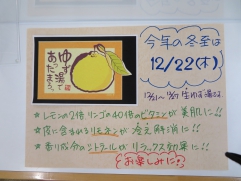 ゆず湯で
あったまろう。
今年の冬至は
12/22(木)
＊レモンの2倍 リンゴの40倍のビタミンが美肌に!!
＊皮に含まれるリモネンが冷え解消に!!
＊香り成分のシトラールがリラックス効果に!!
お楽しみに